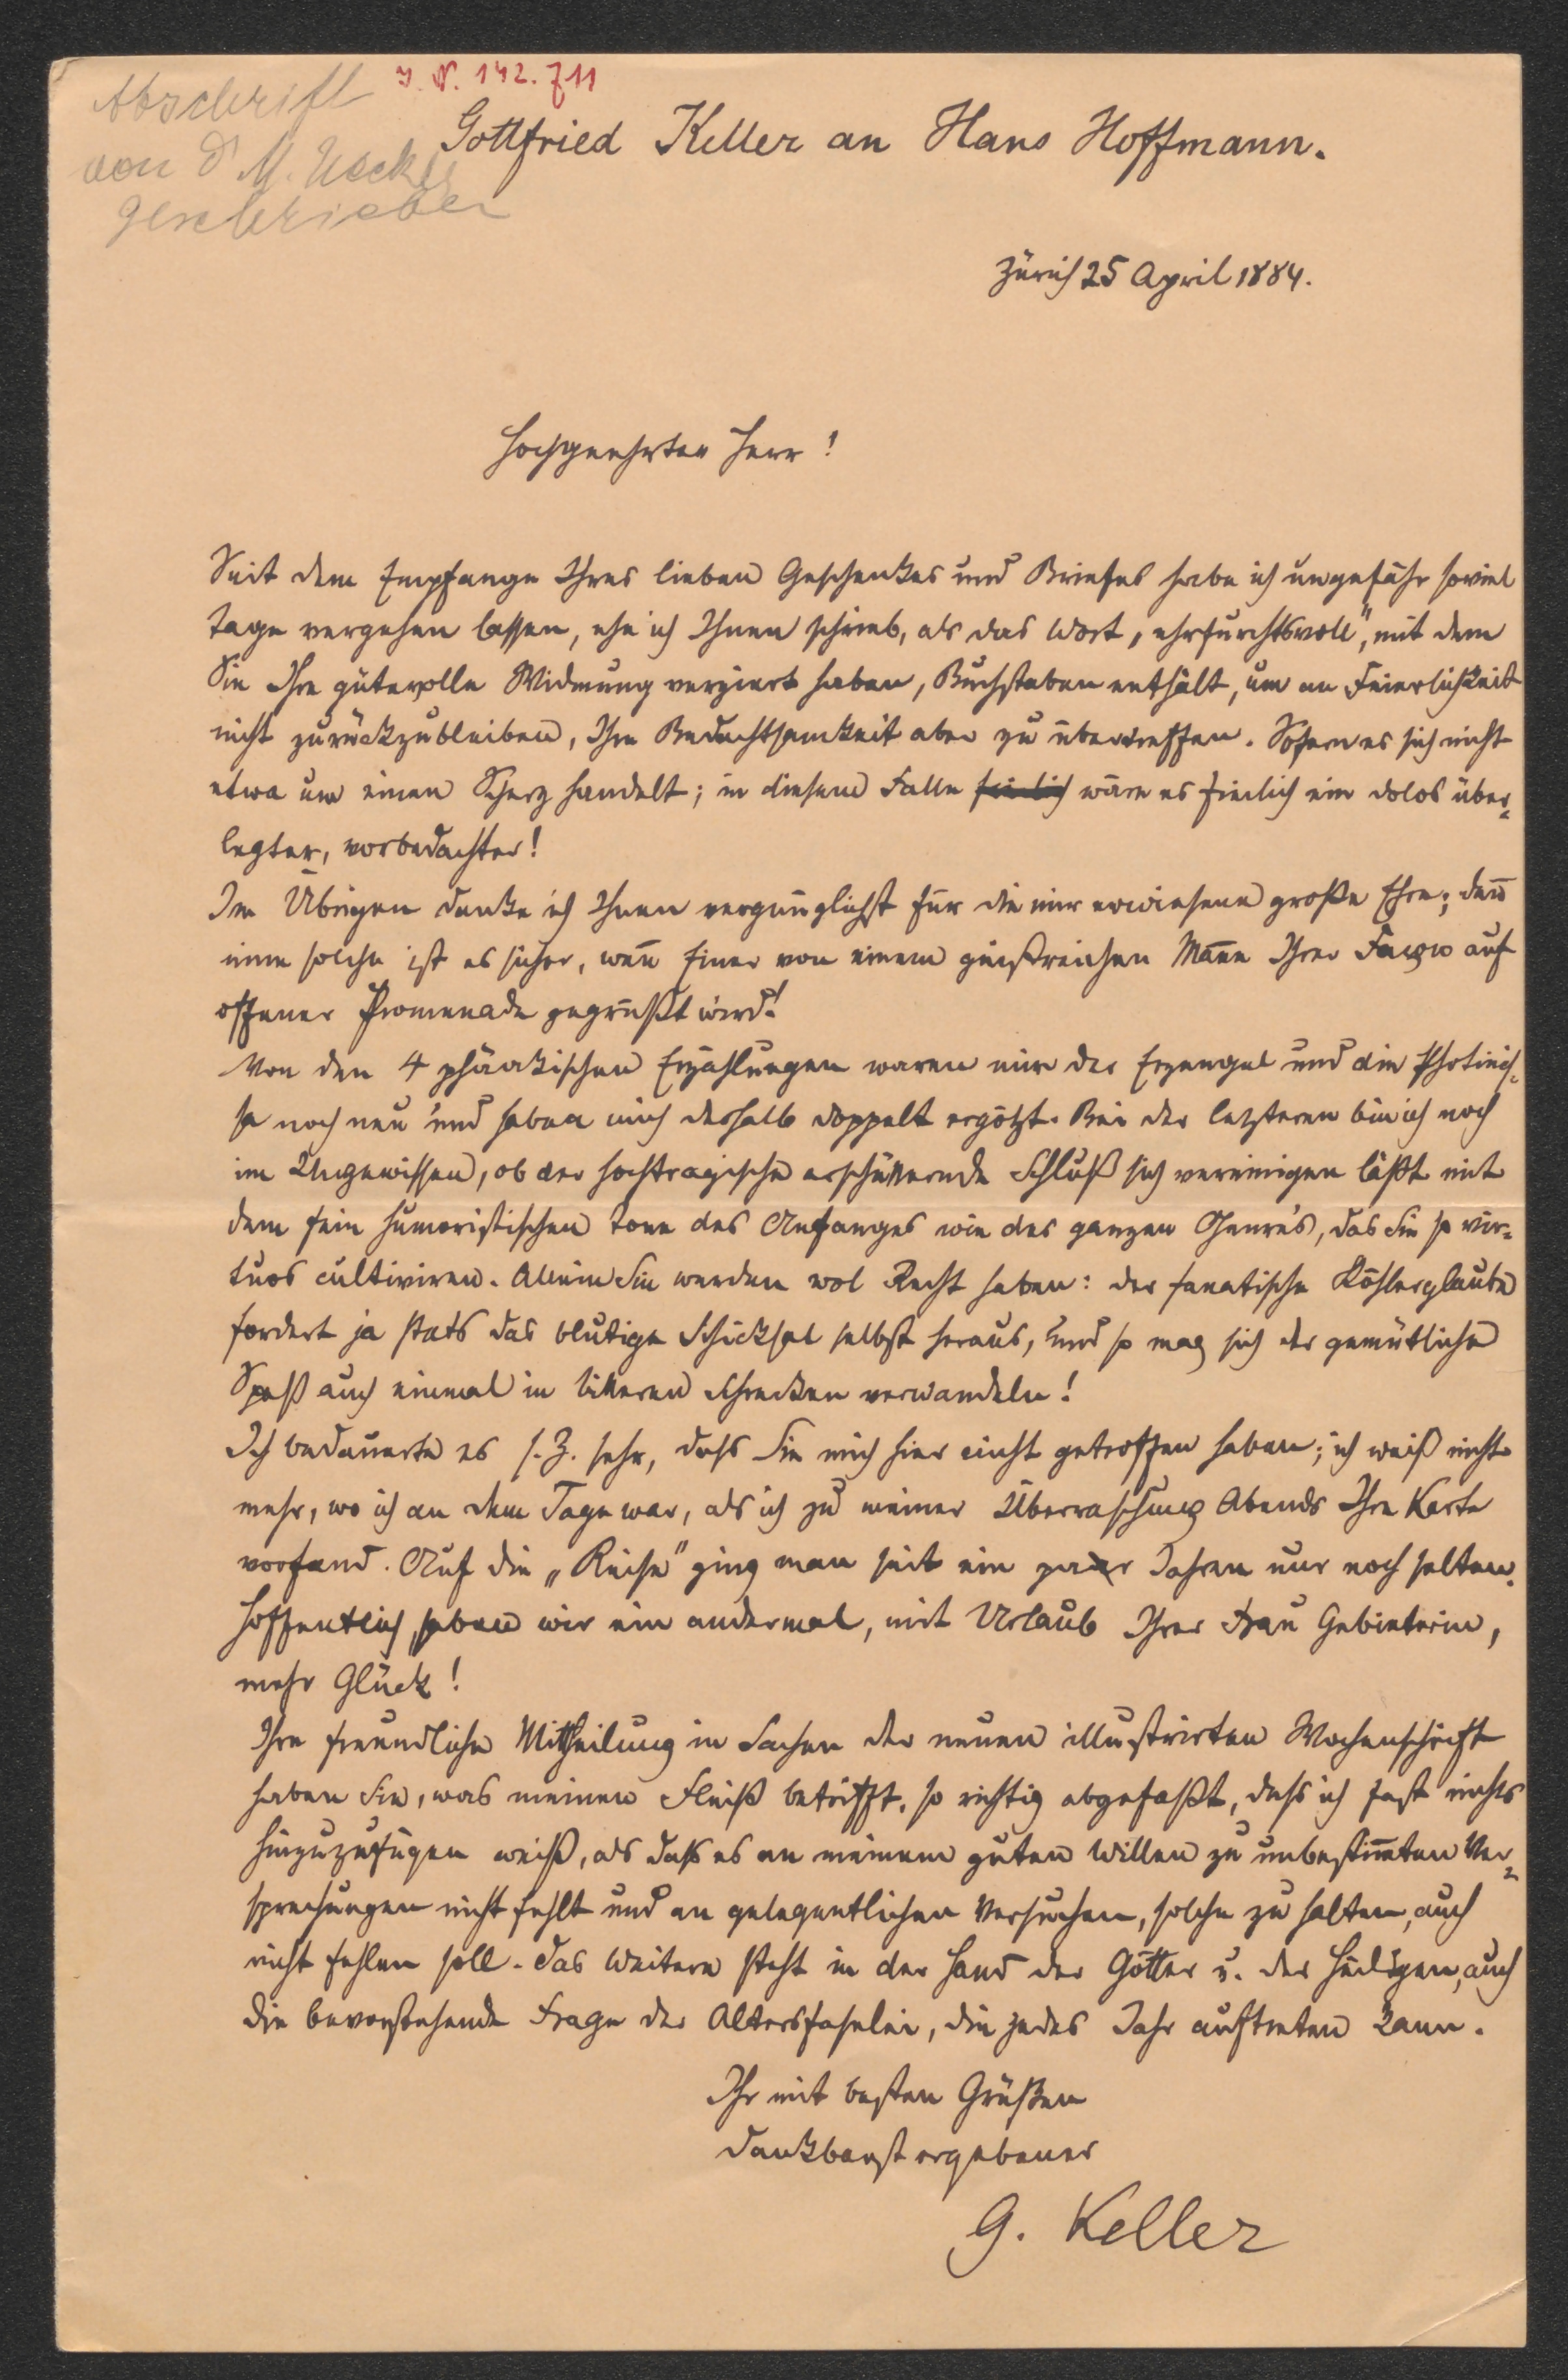 Abschrift
von Dr M. Necker
geschrieben
J. N. 142.711
Gottfried Keller an Hans Hoffmann.
Zürich 25 April 1884.
Hochgeehrter Herr!
Seit dem Empfange Ihres lieben Geschenkes und Briefes habe ich ungefähr soviel
Tage vergehen lassen, ehe ich Ihnen schrieb, als das Wort „ehrfurchtsvoll", mit dem
Sie Ihre gütevolle Widmung verziert haben, Buchstaben enthält, um an Feierlichkeit
nicht zurückzubleiben, Ihre Bedachtsamkeit aber zu übertreffen. Sofern es sich nicht
etwa um einen Scherz handelt; in diesem Falle freilich wäre es freilich ein dolos über-
legter, vorbedachter!
Im Übrigen danke ich Ihnen vergnüglichst für die mir erwiesene große Ehre; deñ
eine solche ist es sicher, weñ Einer von einem geistreichen Mañe Ihrer Façon auf
offener Promenade gegrüßt wird!
Von den 4 phäakischen Erzählungen waren mir der Erzengel und die Photinis-
sa noch neu und haben mich deshalb doppelt ergötzt. Bei der letzteren bin ich noch
im Ungewissen, ob der hochtragische erschütternde Schluß sich vereinigen läßt mit
dem fein humoristischen Tone des Anfanges wie des ganzen Genre's, das Sie so vir-
tuos cultiviren. Allein Sie werden wol Recht haben: der fanatische Köhlerglaube
fordert ja stets das blutige Schicksal selbst heraus, und so mag sich der gemütliche
Spaß auch einmal in bitteren Schrecken verwandeln!
Ich bedauerte es s. Z. sehr, dass Sie mich hier nicht getroffen haben; ich weiß nicht
mehr, wo ich an dem Tage war, als ich zu meiner Überraschung Abends Ihre Karte
vorfand. Auf die „Reise" ging man seit ein paar Jahren nur noch selten.
Hoffentlich haben wir ein andermal, mit Urlaub Ihrer Frau Gebieterin,
mehr Glück!
Ihre freundliche Mittheilung in Sachen der neuen illustrirten Wochenschrift
haben Sie, was meinen Fleiß betrifft, so richtig abgefaßt, dass ich fast nichts
hinzuzufügen weiß, als daß es an meinem guten Willen zu unbestim̄ten Ver-
sprechungen nicht fehlt und an gelegentlichen Versuchen, solche zu halten, auch
nicht fehlen soll. Das Weitere steht in der Hand der Götter u. der Heiligen, auch
die bevorstehende Frage der Altersfaselei, die jedes Jahr auftreten kann.
Ihr mit besten Grüßen
dankbarst ergebener
G. Keller